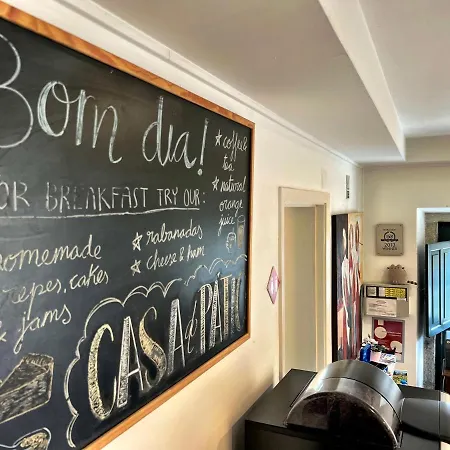 Bom dia!
OR BREAKFAST TRY OUR:
homemade
crepes, cakes
& jams
★ rabanadas
★ cheese & ham
★ coffee &
tea
★ natural
orange
juice
CASA do PÁTI
2013